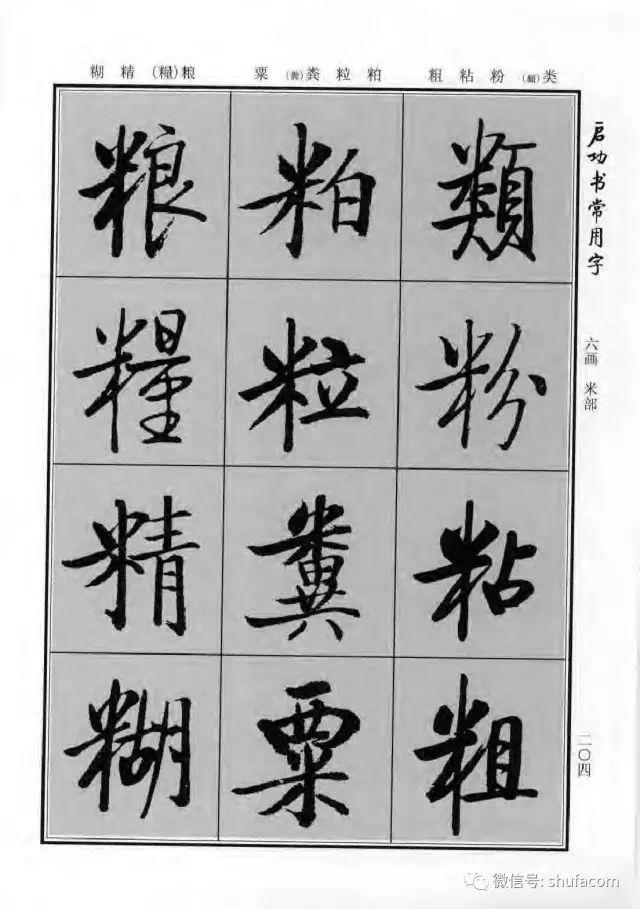 糊 精 (糧)粮 粟 (糞)粪 粒 粕 粗 粘 粉 (類)类
启功书常用字
六画 米部
二〇四
類
粉
粘
粗
粕
粒
糞
粟
粮
糧
精
糊
微信号: shufacom